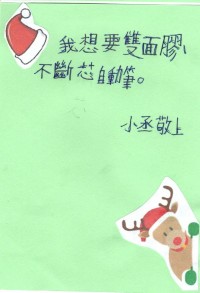 我想要雙面膠、
不斷芯自動筆。
小丞敬上